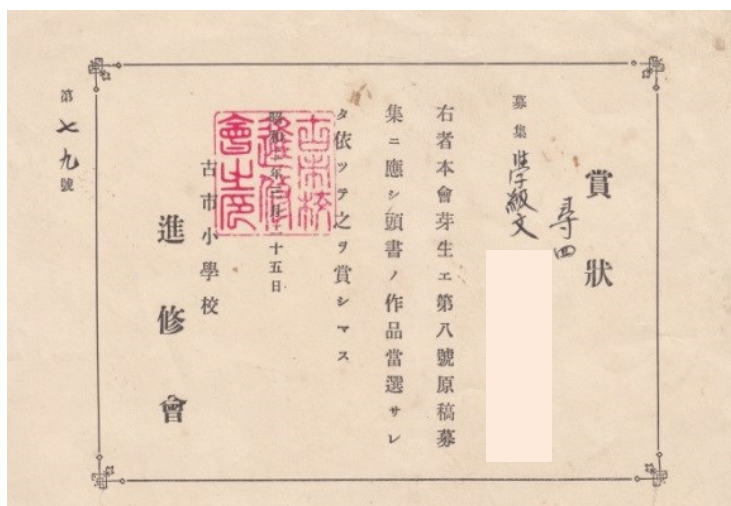 賞狀
尋四
募集 學級文
右者本會芽生エ第八號原稿募
集ニ應シ頭書ノ作品當選サレ
タ依ッテ之ヲ賞シマス
昭和 年三月 十五日
古市小學校
進修會
古市校
進修
會之印
第七九號